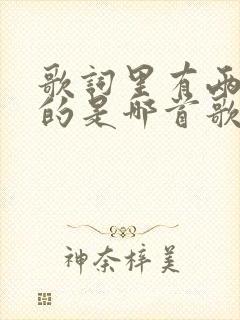 歌詞里有兩
的是哪首歌
神奈梓美